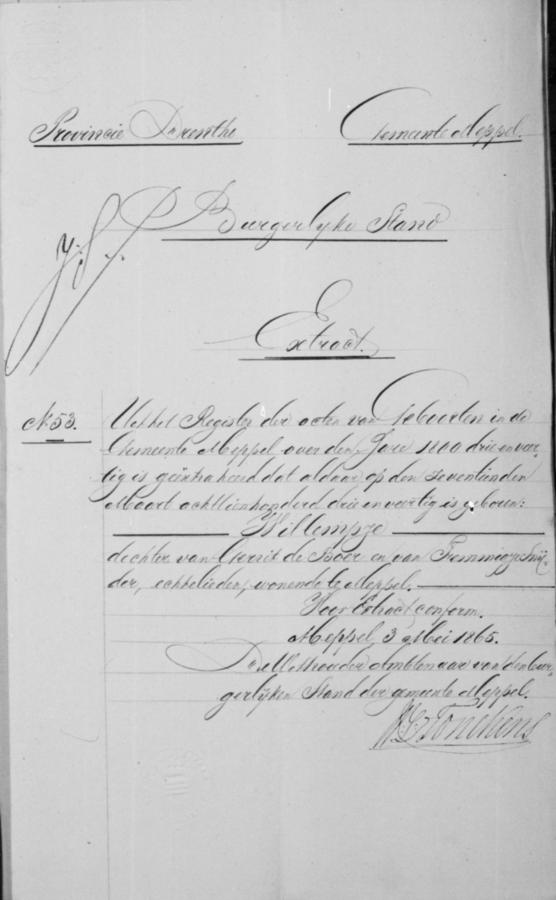 Provincie Drenthe Gemeente Meppel.
Burgerlijke Stand
Extract.
No 53. Uit het Register der acten van Geboorten in de
Gemeente Meppel over den Jare 1800 drie en veer-
tig is geëxtraheerd dat aldaar op den zeventienden
Maart achttienhonderd drie en veertig is geboren:
Willempje
dochter van Gerrit de Boer en van Femmegje Snij-
der, echtelieden, wonende te Meppel.
Voor Extract conform.
Meppel, 3 Mei 1865.
De Wethouder Ambtenaar van den bur-
gerlijken Stand der gemeente Meppel.
Tonckens